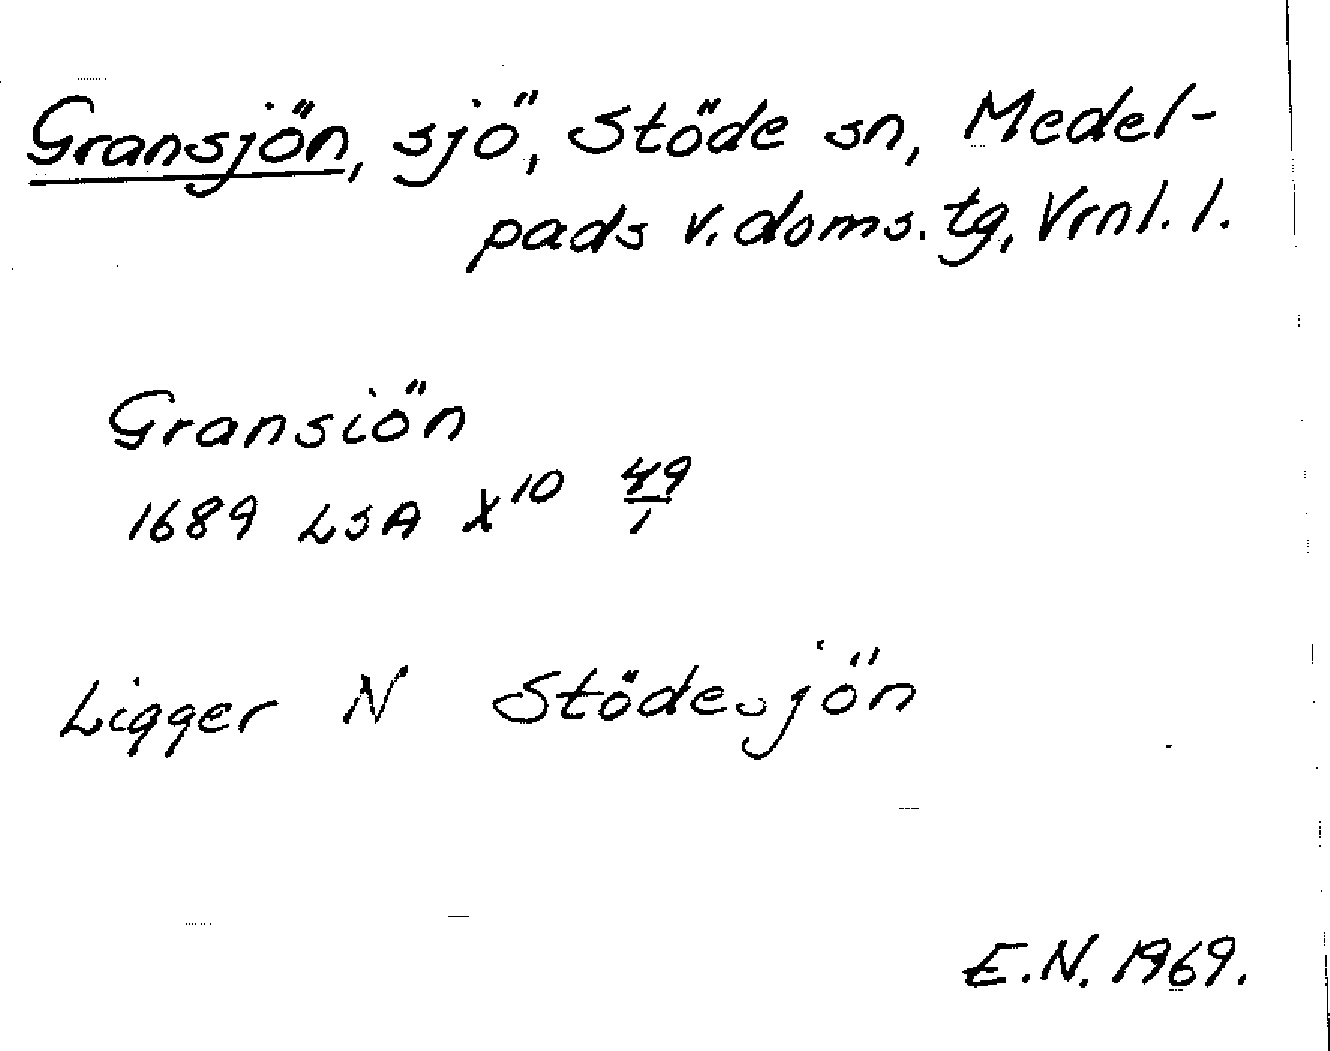 Gransjön, sjö, Stöde sn, Medel-
pads v. doms. tg, Vrnl. l.
Gransiön
1689 LSA X¹⁰ 49/1
Ligger N Stödesjön
E.N. 1969.